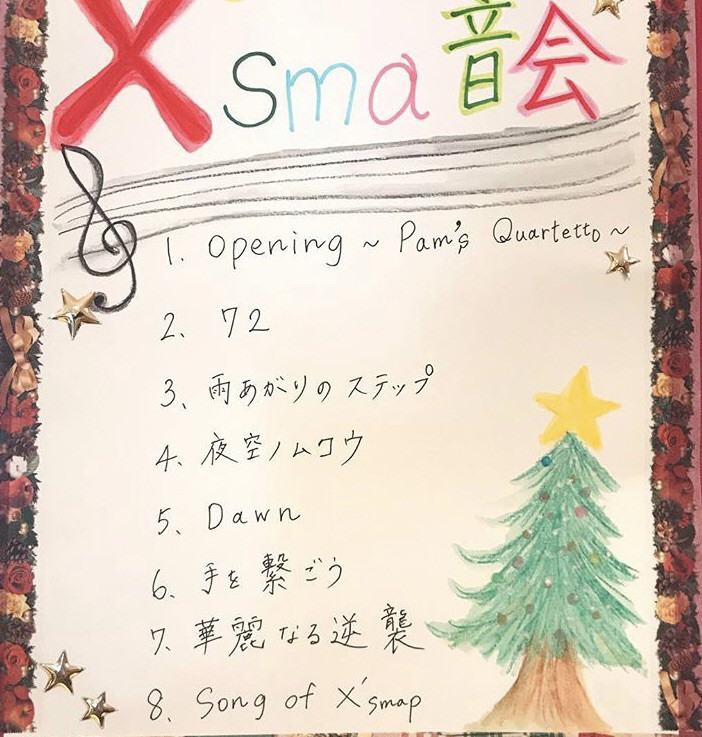 X'sma音会
1. Opening ~ Pam's Quartetto ~
2. 72
3、雨あがりのステップ
4、夜空ノムコウ
5、Dawn
6、手を繋ごう
7、華麗なる逆襲
8、Song of X'smap